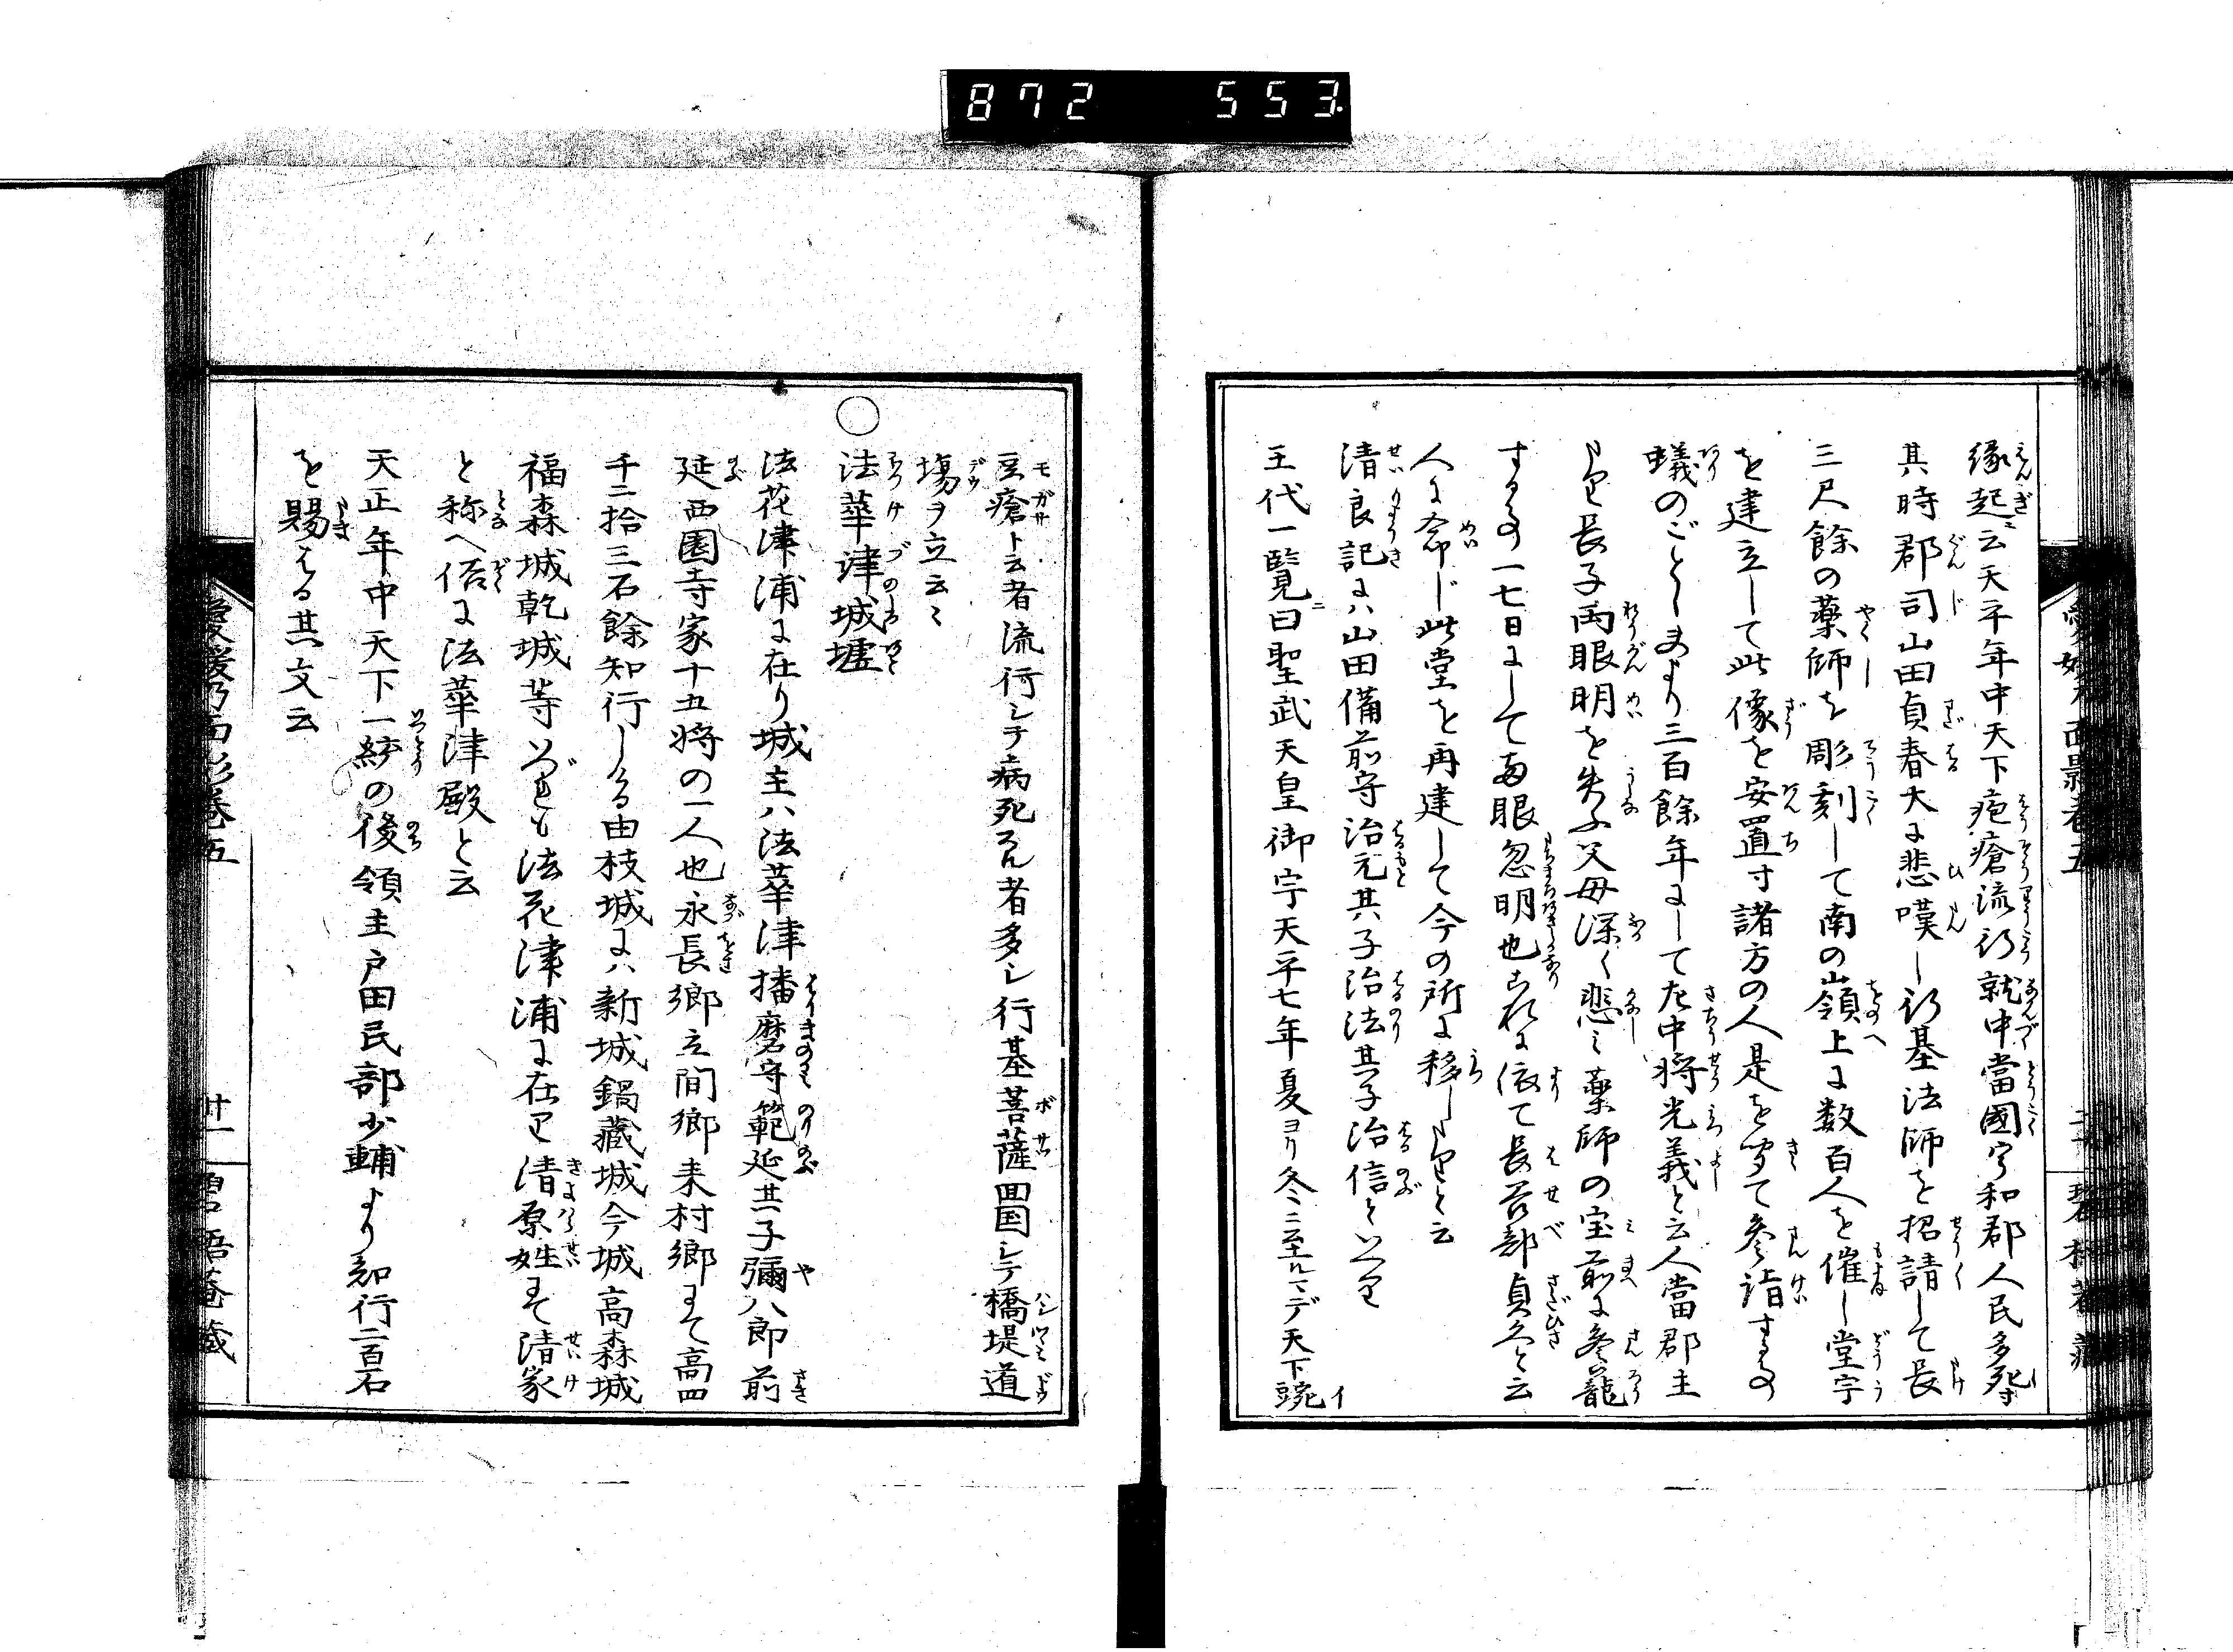 872 553
縁起ニ云天平年中天下疱瘡流行就中當國宇和郡人民多死寸
其時郡司山田貞春大に悲嘆し行基法師を招請して長
三尺餘の薬師を彫刻して南の山嶺上に数百人を催し堂宇
を建立して此像を安置寸諸方の人是を聞て参詣する事
蟻のごとし夫より三百餘年にして左中将光義と云人當郡主
たり長子両眼明を失ふ父母深く悲ミ薬師の宝前に参籠
する事一七日にして両眼忽明也これに依て長谷部貞久と云
人に命じ此堂を再建して今の所に移したりと云
清良記にハ山田備前守治元其子治法其子治信といへり
王代一覧ニ曰聖武天皇御宇天平七年夏ヨリ冬ニ至ルマデ天下豌
豆瘡ト云者流行シテ病死スル者多シ行基菩薩四国シテ橋堤道
場ヲ立云々
○法華津城墟
法花津浦に在り城主ハ法華津播磨守範延其子彌八郎前
延西園寺家十五将の一人也永長郷立間郷来村郷にて高四
千二拾三石餘知行しける由枝城にハ新城鍋蔵城今城高森城
福森城乾城等いづれも法花津浦に在り清原姓にて清家
と称へ俗に法華津殿と云
天正年中天下一統の後領主戸田民部少輔より知行二百石
を賜はる其文云
愛媛乃面影巻五
廿一